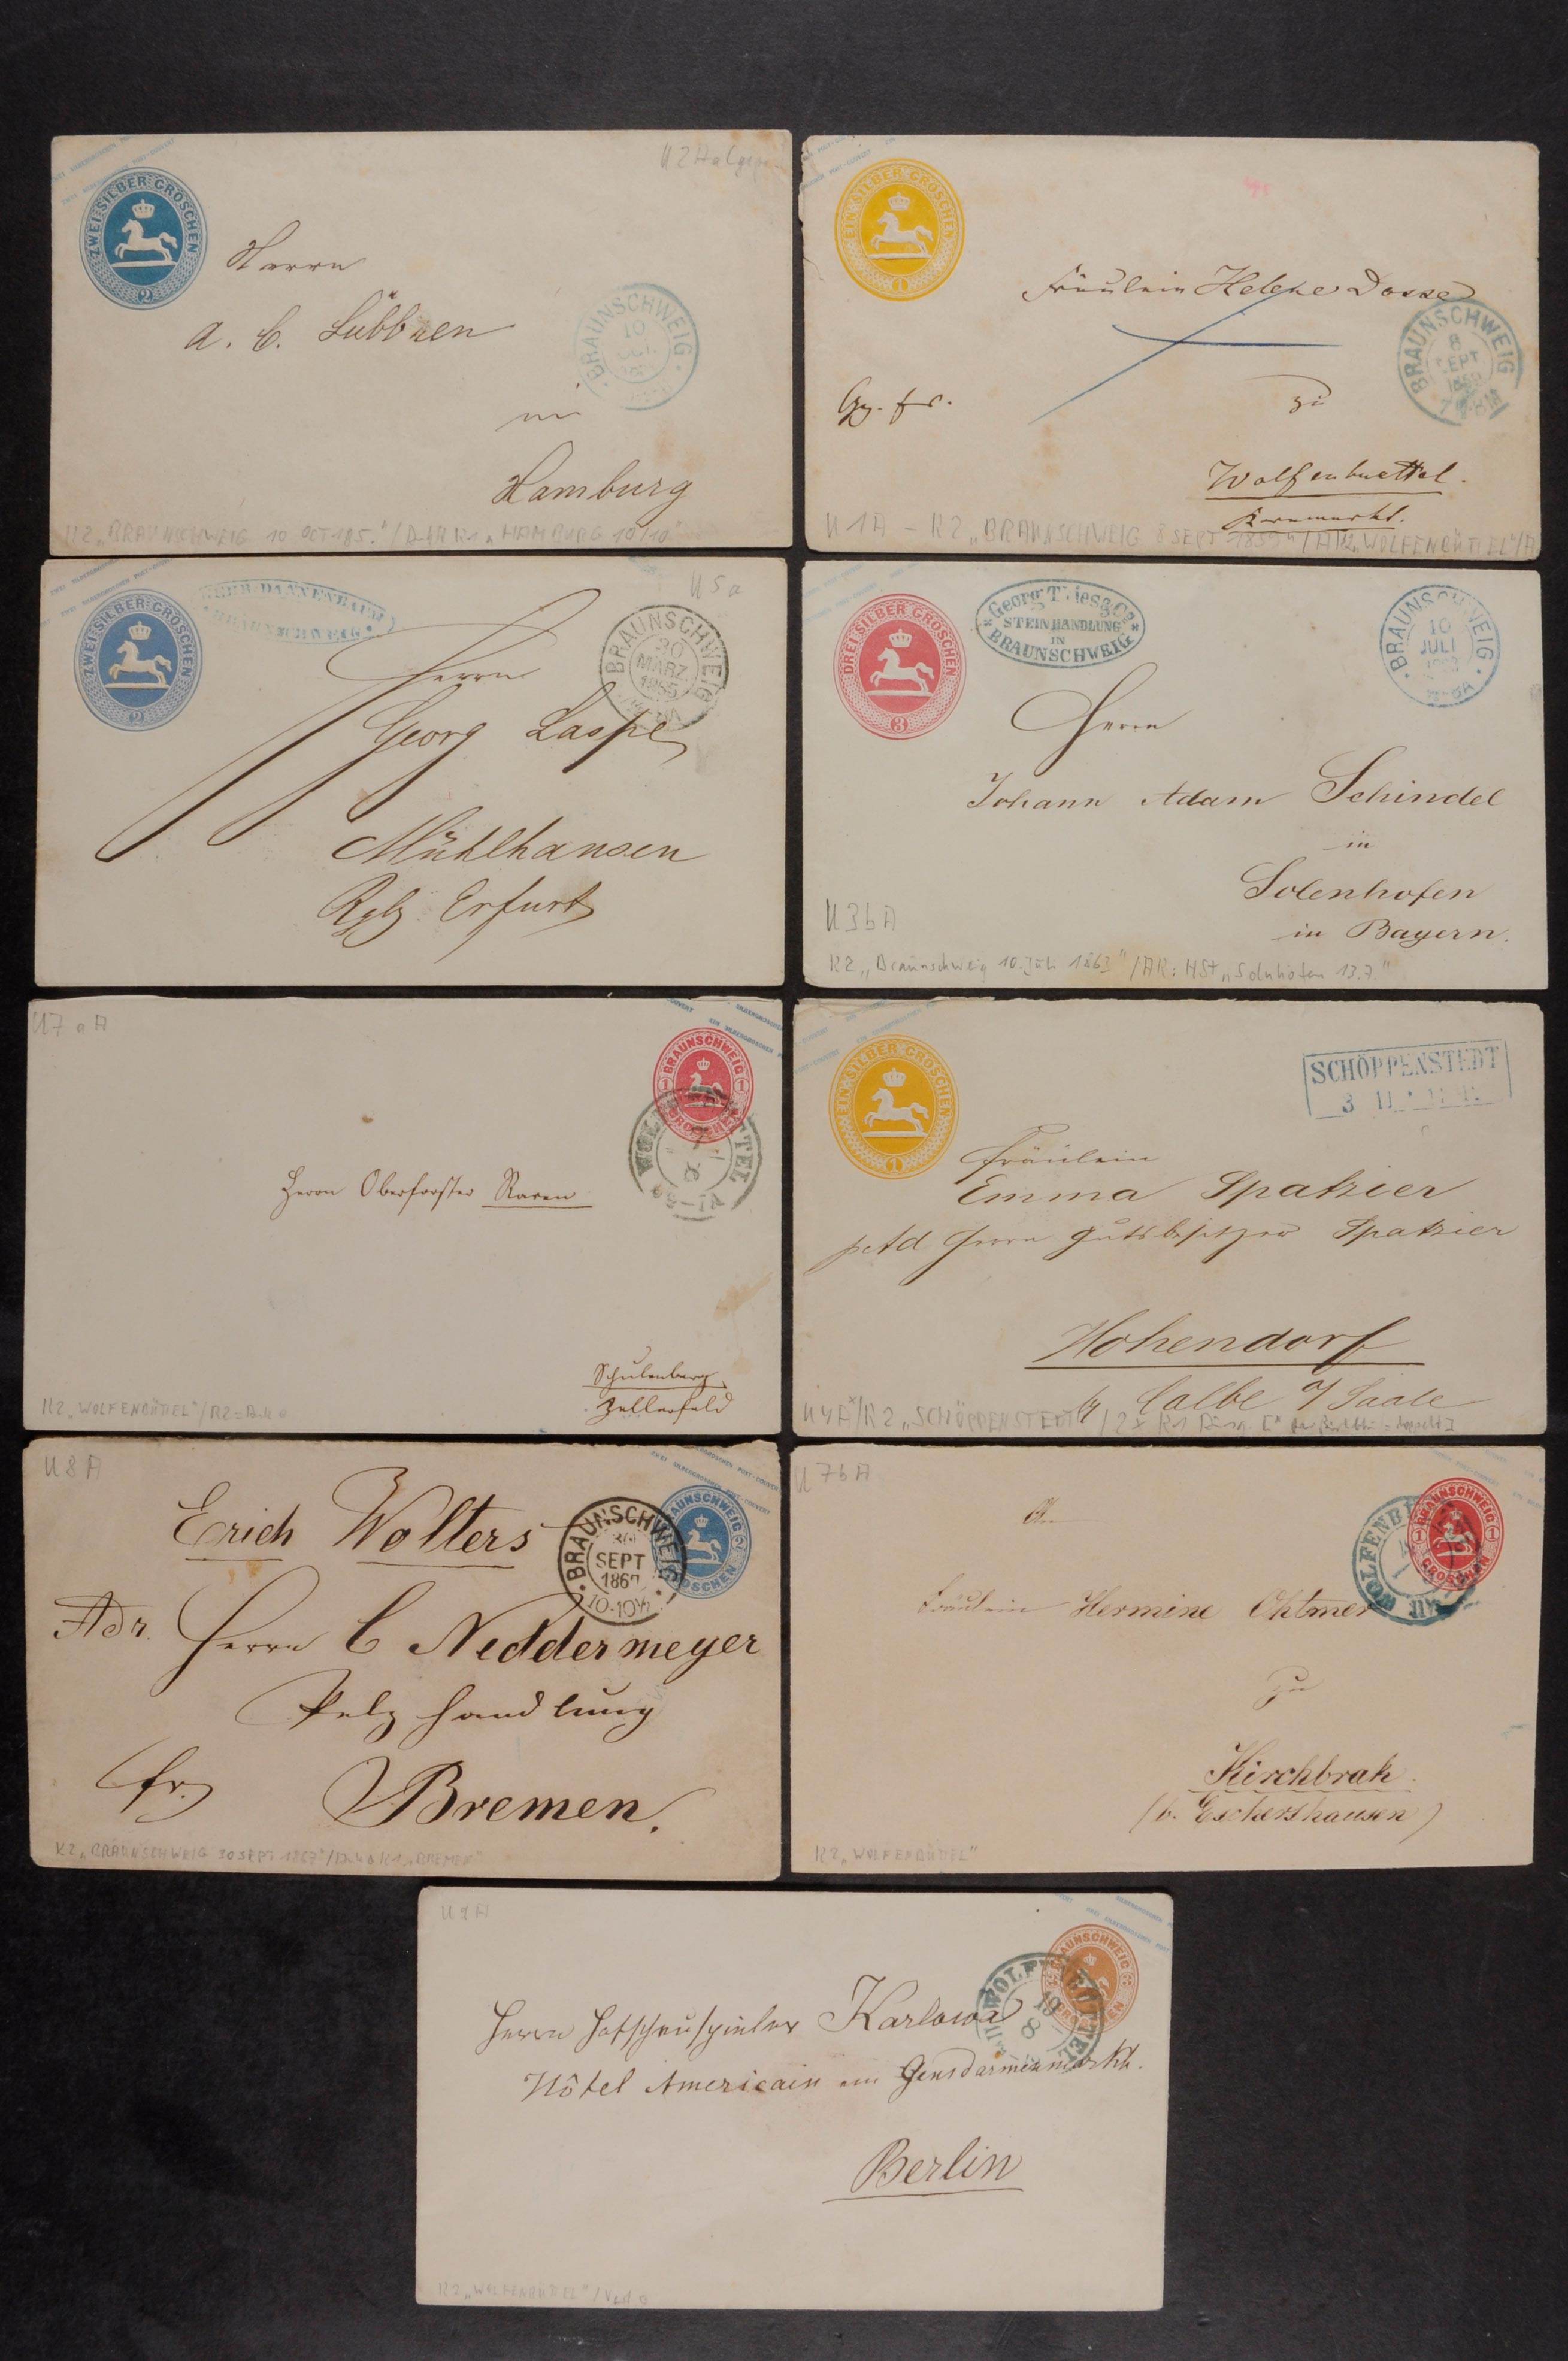 ZWEI SILBER GROSCHEN
2
U 2 A
Herrn
A. C. Lübbren
in
Hamburg
BRAUNSCHWEIG
10
OCT
K2 „BRAUNSCHWEIG 10 OCT 185." / HAMBURG 10/10"
EIN SILBER GROSCHEN
1
Fräulein Helene Dosse
fr.
zu
Wolfenbuettel.
BRAUNSCHWEIG
8
SEPT
U 1 A – K2 „BRAUNSCHWEIG 8 SEPT 1859" / „WOLFENBÜTTEL"/
ZWEI SILBER GROSCHEN
2
GEBR. DANNENBAUM
BRAUNSCHWEIG
U 5 a
BRAUNSCHWEIG
20
MÄRZ
1865
Herrn
Georg Laspe
Mühlhausen
Rgbz Erfurt
DREI SILBER GROSCHEN
3
Georg Thies & Co
STEINHANDLUNG
IN
BRAUNSCHWEIG
BRAUNSCHWEIG
10
JULI
Herrn
Johann Adam Schindel
in
Solenhofen
in Bayern.
U 3 b A
K2 „Braunschweig 10. Juli 1863" / AK: HSt „Solnhofen 13.7."
U 7 a A
BRAUNSCHWEIG
1 1
GROSCHEN
WOLFENBÜTTEL
Herrn Oberförster
Schulenberg
Zellerfeld
K2 „WOLFENBÜTTEL" /
EIN SILBER GROSCHEN
1
SCHÖPPENSTEDT
3 11
Fräulein
Emma Spatzier
Herrn Gutsbesitzer Spatzier
Hohendorf
Calbe a/ Saale
U 4 A / K2 „SCHÖPPENSTEDT" /
U 8 A
BRAUNSCHWEIG
2
GROSCHEN
BRAUNSCHWEIG
30
SEPT
1867
10-10½
Erich Wolters
Adr. Herrn C Neddermeyer
Pelz handlung
fr.
Bremen.
K2 „BRAUNSCHWEIG 30 SEPT 1867" / K1 „BREMEN"
U 7 b A
BRAUNSCHWEIG
1 1
GROSCHEN
WOLFENBÜTTEL
An
Fräulein Hermine Ohlmer
zu
Kirchbrak
(b. Eschershausen)
K2 „WOLFENBÜTTEL"
U 9 A
BRAUNSCHWEIG
GROSCHEN
WOLFENBÜTTEL
19
8
Herrn Hofschauspieler Karlowa
Hôtel Americain am Gensdarmenmarkt.
Berlin
K2 „WOLFENBÜTTEL" /